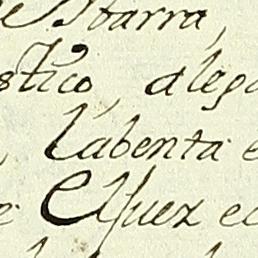 e Ibarra,
stico, alega
Labenta e
e el Juez ec